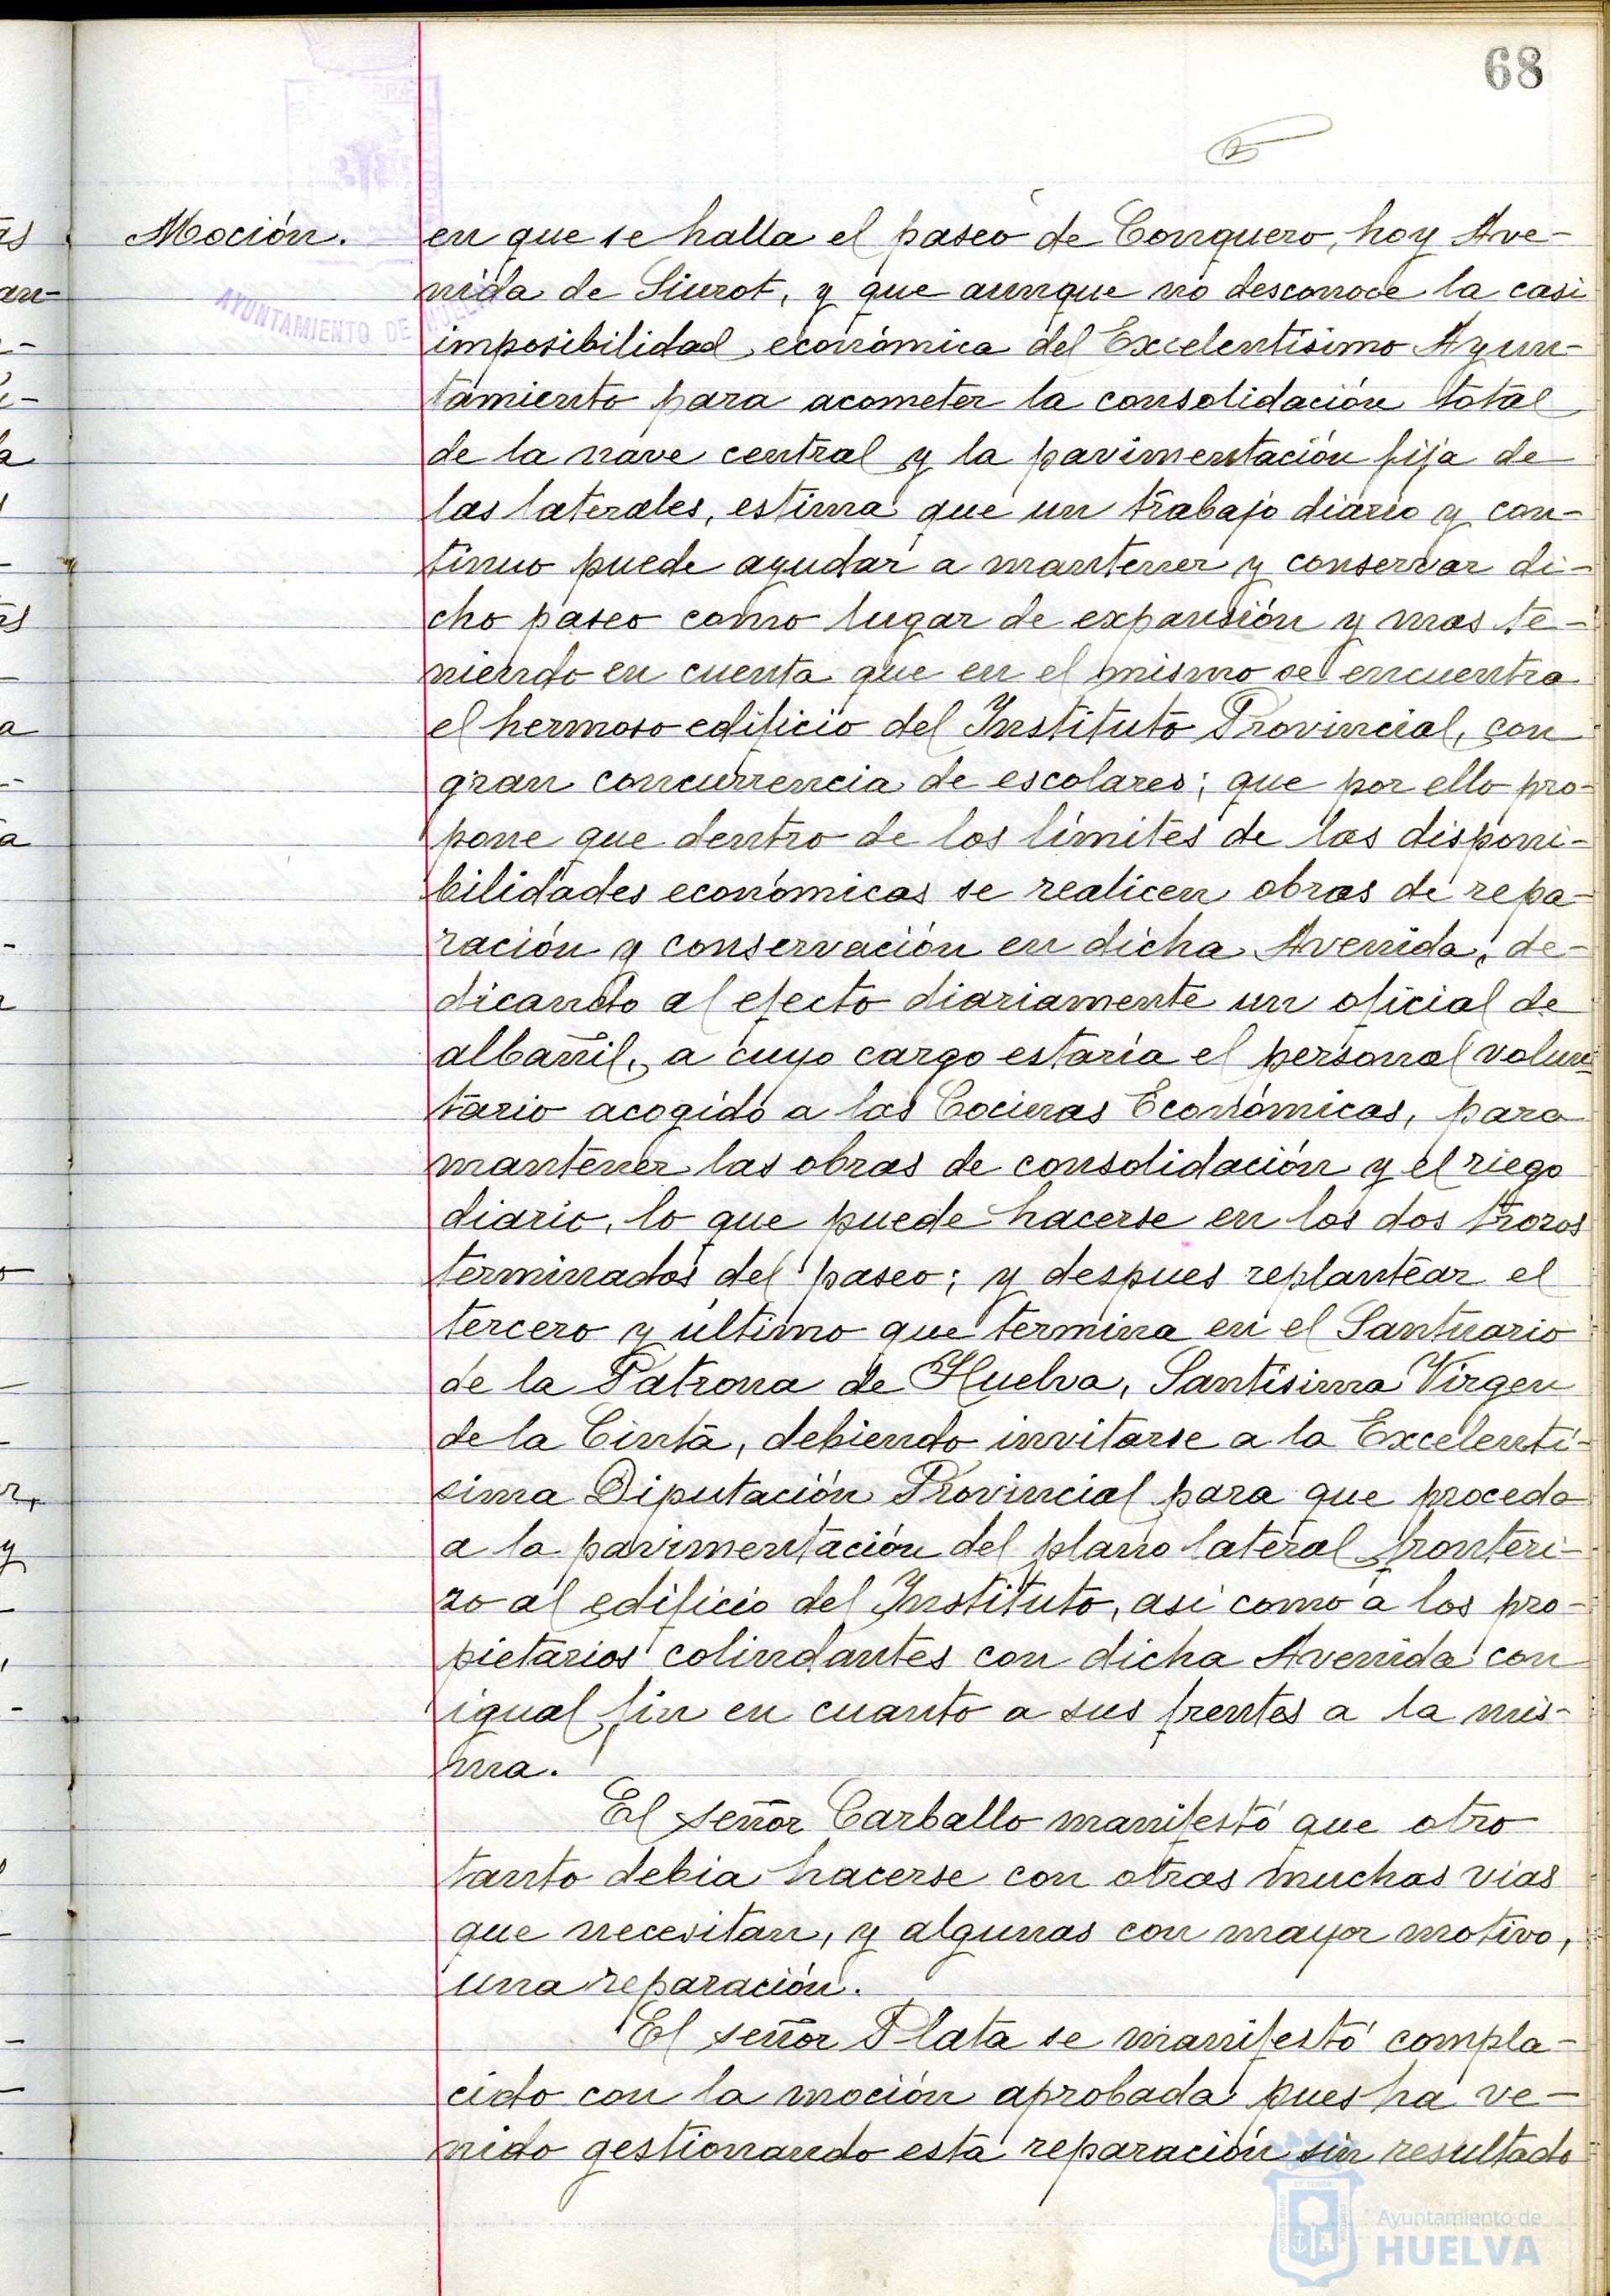 68
Moción.
en que se halla el paseo de Conquero, hoy Ave-
nida de Siurot, y que aunque no desconoce la casi
imposibilidad económica del Excelentísimo Ayun-
tamiento para acometer la consolidación total
de la nave central y la pavimentación fija de
las laterales, estima que un trabajo diario y con-
tinuo puede ayudar a mantener y conservar di-
cho paseo como lugar de expansión y mas te-
niendo en cuenta que en el mismo se encuentra
el hermoso edificio del Instituto Provincial, con
gran concurrencia de escolares; que por ello pro-
pone que dentro de los límites de las disponi-
bilidades económicas se realicen obras de repa-
ración y conservación en dicha Avenida, de-
dicando al efecto diariamente un oficial de
albañil, a cuyo cargo estaría el personal volun-
tario acogido a las Cocinas Económicas, para
mantener las obras de consolidación y el riego
diario, lo que puede hacerse en los dos trozos
terminados del paseo; y despues replantear el
tercero y último que termina en el Santuario
de la Patrona de Huelva, Santísima Virgen
de la Cinta, debiendo invitarse a la Excelentí-
sima Diputación Provincial para que proceda
a la pavimentación del plano lateral fronteri-
zo al edificio del Instituto, asi como a los pro-
pietarios colindantes con dicha Avenida con
igual fin en cuanto a sus frentes a la mis-
ma.
El señor Carballo manifestó que otro
tanto debia hacerse con otras muchas vias
que necesitan, y algunas con mayor motivo,
una reparación.
El señor Plata se manifestó compla-
cido con la moción aprobada pues ha ve-
nido gestionando esta reparación sin resultado
AYUNTAMIENTO DE HUELVA
Ayuntamiento de
HUELVA